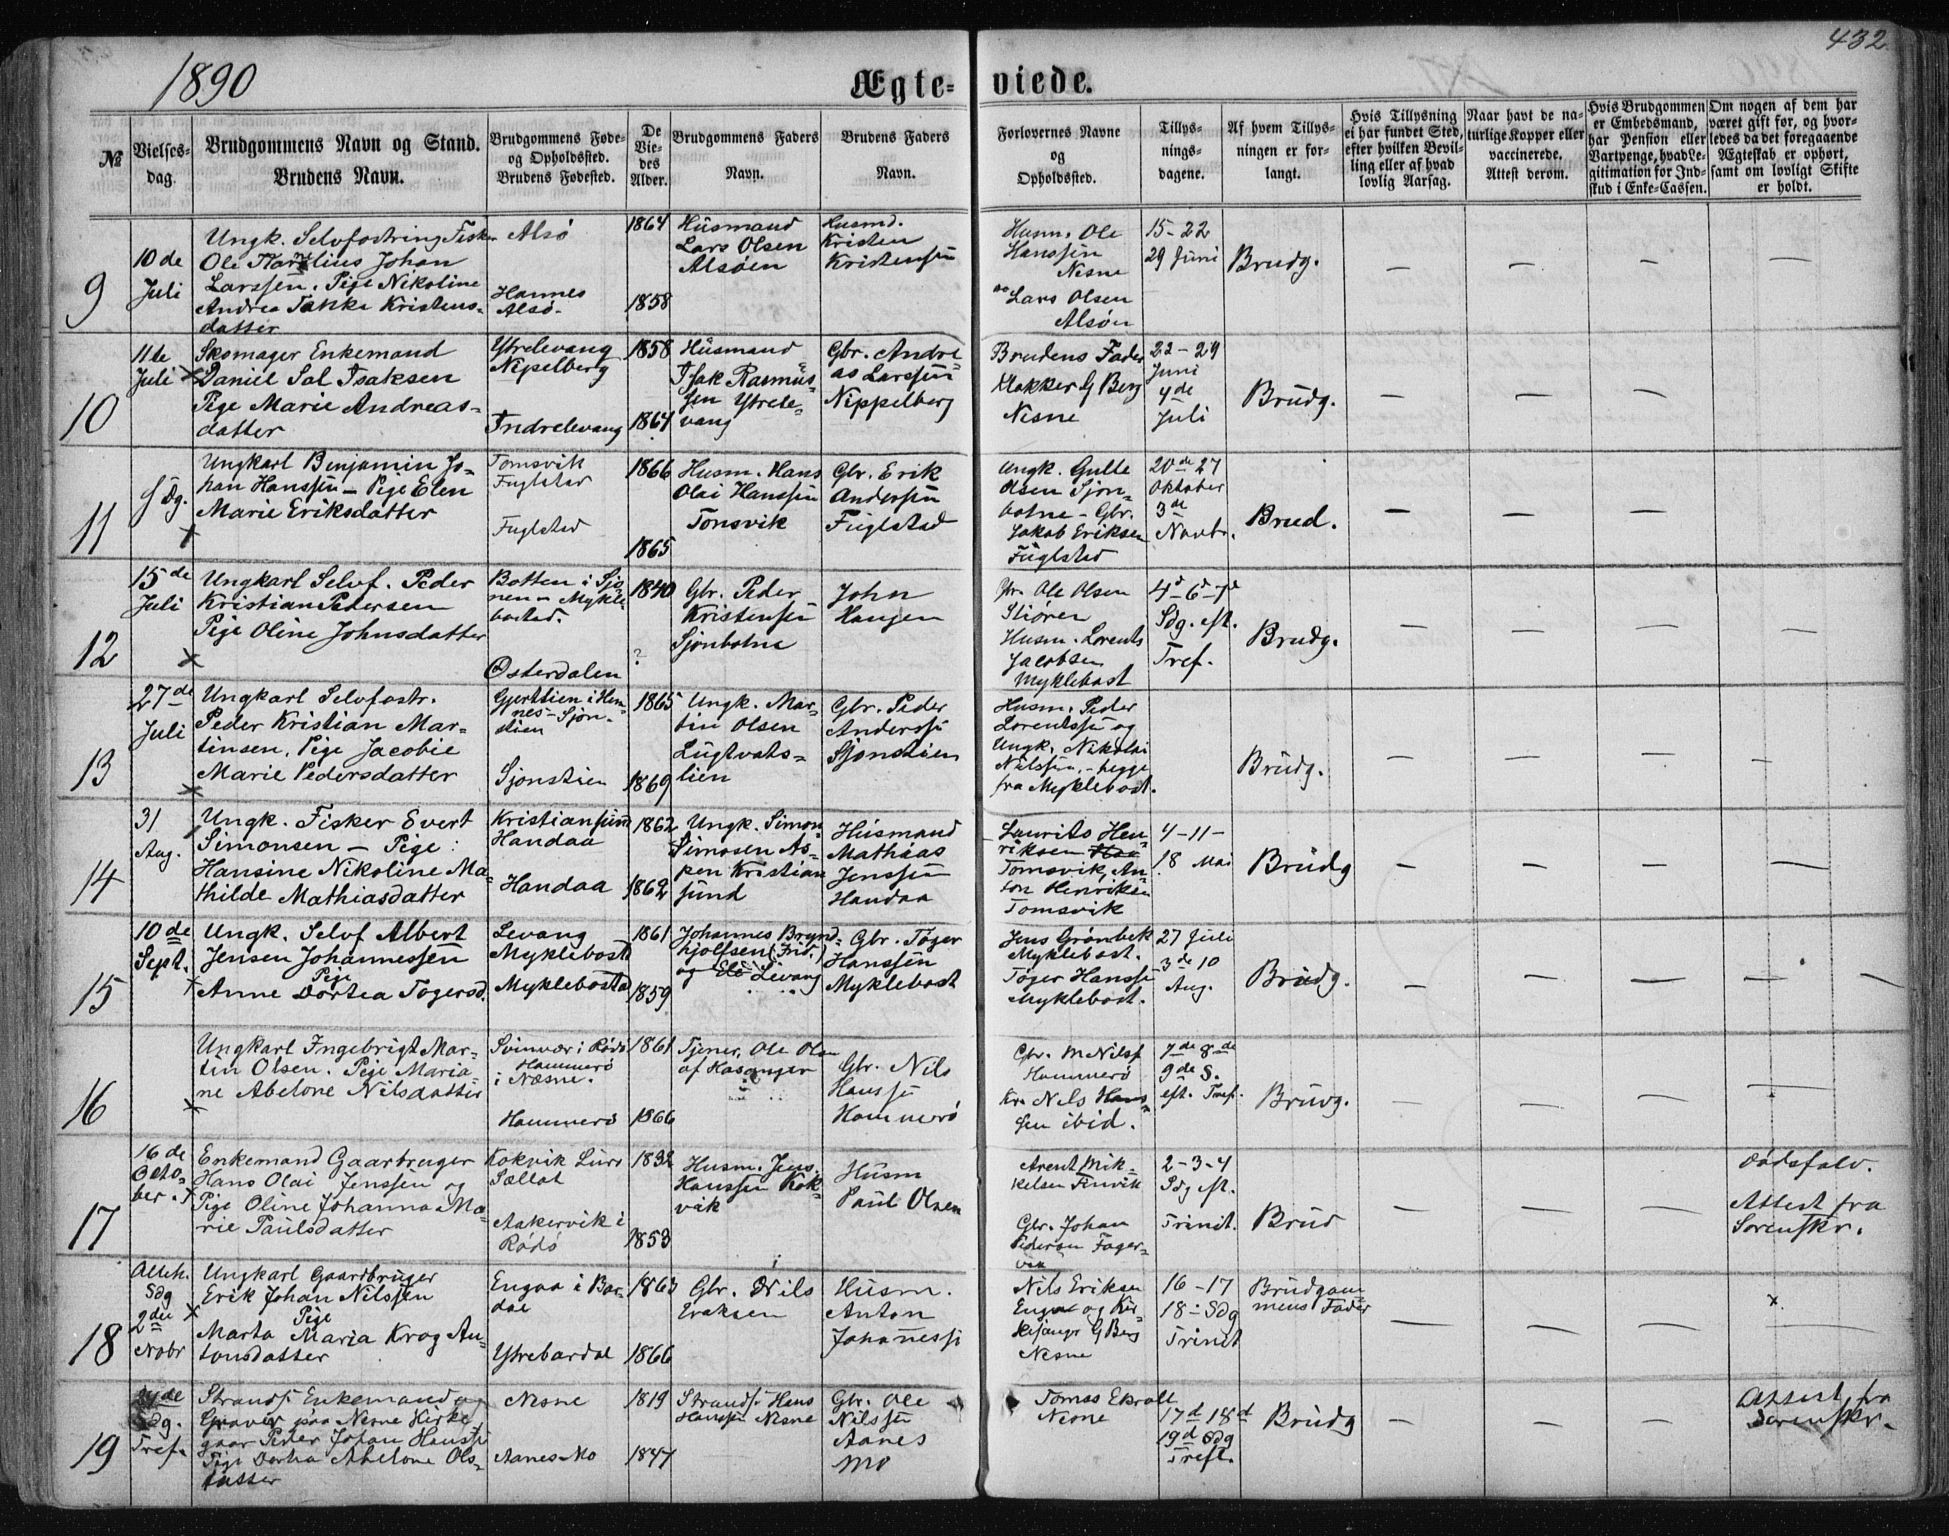 1890
432
Ægte-
viede.
№
Vielses-
dag.
Brudgommens Navn og Stand.
Brudens Navn.
Brudgommens Føde-
og Opholdssted.
Brudens Fødested.
De
Vie-
des
Alder.
Brudgommens Faders
Navn.
Brudens Faders
Navn.
Forlovernes Navne
og
Opholdssted.
Tillys-
nings-
dagene.
Af hvem Tillys-
ningen er for-
langt.
Hvis Tillysning
ei har fundet Sted,
efter hvilken Bevil-
ling eller af hvad
lovlig Aarsag.
Naar havt de na-
turlige Kopper eller
vaccinerede.
Attest derom.
Hvis Brudgommen
er Embedsmand,
har Pension eller
Vartpenge, hvad Le-
gitimation for Ind-
skud i Enke-Cassen.
Om nogen af dem har
været gift før, og hvor-
ledes da det foregaaende
Ægteskab er ophørt,
samt om lovligt Skifte
er holdt.
9
10 de
Juli
Ungk. Selvfostring Fisker
Ole Johan
Larssen. Pige Nikoline
Andrea Kristens-
datter
Alsø
Hannes
Alsø.
1864
1858
Husmand
Lars Olsen
Alsøen
Husmd.
Kristen
Kristensen
Husm. Ole
Hanssen
Nesne
Lars Olsen
Alsøn
15-22
29 Juni
Brudg.
10
11 de
Juli ×
Skomager Enkemand
Daniel Sal Isaksen
Pige Marie Andreas-
datter
Ytrelevang
Nipelberg
Indrelevang
1858
1864
Husmand
Isak Rasmus-
sen Ytrele-
vang
Gbr. Andre
as Larssen
Nippelberg
Brudens Fader
Klokker G Berg
Nesne
22-29
Juni
4de
Juli
Brudg.
11
s Dg.
Ungkarl Benjamin Jo-
han Hanssen - Pige Elen
Marie Eriksdatter
Tomsvik
Fuglstad
Fuglstad
1866
1865
Husm. Hans
Olai Hanssen
Tonsvik
Gbr. Erik
Andersen
Fuglstad
Ungk. Gulle
Olsen Sjon-
botne - Gbr.
Jakob Eriksen
Fuglstad
20de 27
Oktober
3de
Novbr.
Brud.
12
15de
Juli
×
Ungkarl Selvf. Peder
Kristian Pedersen
Pige Oline Johnsdatter
Botten i Sjo
nen - Mykle
bostad.
Østerdalen
1840
?
Gbr. Peder
Kristensen
Sjonbotne
John
Hansen
Ole Olsen
Stiøren
Husm. Lorents
Jacobsen
Myklebost
4d-6d-7d
Sdg. eft.
Tref.
Brudg.
13
27de
Juli
×
Ungkarl Selvfostr.
Peder Kristian Mar-
tinsen. Pige Jacobie
Marie Pedersdatter
Gjertlien i Hem-
nes - Sjon-
stien
Sjonstien
1865
1869
Ungk. Mar-
tin Olsen
Lugtvats-
lien
Gbr. Peder
Anderssen
Sjonstien
Husm. Peder
Lorentssen og
Ungk. Nikolai
Nilssen, - begge
fra Myklebost.
Brudg.
14
31
Aug.
Ungk. Fisker Evert
Simonsen - Pige:
Hansine Nikoline Ma-
thilde Mathiasdatter
Kristiansund
Handaa
Handaa
1862
1862
Ungk. Simon
Simosen As-
pen Kristian
sund
Husmand
Mathias
Jenssen
Handaa
Laurits Hen-
riksen
Tomsvik, An-
ton Henriksen
Tomsvik
4-11-
18 Mai
Brudg
15
10de
Sept.
Ungk. Selvf Albert
Jensen Johannessen
Pige
Anne Dortea Tøgersd.
Levang
Myklebostd
Myklebostd
1861
1859
Johannes Brynd-
hjolfsen (Ind.)
og Levang
Gbr. Tøger
Hanssen
Myklebost
Jens Grønbek
Myklebost.
Tøger Hanssen
Myklebost.
27 Juli
3de 10
Aug.
Brudg.
16
×
Ungkarl Ingebrigt Mar-
tin Olsen. Pige Maria
ne Abelone Nilsdatter
Svinvær i Rødø
Hammerø
i Næsne.
Hammerø
1861
1866
Tjener, Ole Olsen
af Hasanger
Gbr. Nils
Hanssen
Hammerø
Gbr. M Nilss
Hammerø
Nils Hans-
sen ibid.
7de 8de
9de S.
eft. Tref.
Brudg.
17
16 de
Octo-
ber.
Enkemand Gaarbruger
Hans Olai Jenssen og
Pige Oline Johanna Ma-
rie Paulsdatter
Kokvik Lurø
Sællot
Aakervik i
Rødø
1832
1853
Husm. Jens
Hanssen Kok-
vik
Husm
Paul Olsen
Arent Mik-
kelsen Finvik
Gbr. Johan
Pederson Fager-
vik
2-3-4
Sdg eft.
Trinit.
Brud
Dødsfalv.
Attest fra
Sorenskr.
18
Alleh.
Sdg
2den ×
Nobr
Ungkarl Gaardbruger
Erik Johan Nilssen
Pige
Marta Maria Krog An-
tonsdatter
Engaa i Bar-
dal
Ytrebardal
1863
1866
Gbr. Nils
Eraksen
Husm.
Anton
Johannessen
Nils Eriksen
Engaa og Kir-
kesanger G Berg
Nesne
16-17
18-Sdg
Trinit
Brudgom
mens Fader
×
19
Sdg.
Tref.
Strands. Enkemand og
Graver paa Nesne Kirke-
gaar Peder Johan Hanssen
Pige Dortea Abelone Ols-
datter
Nesne
Aanes Mo
1819
1847
Strands. Hans
Hanssen Nesne
Gbr. Ole
Nilssen
Aanes
Mo
Tomas Ekrolt
Nesne
17d 18d
19d Sdg
Treft.
Brudg
Attest fra
Sorenskr.